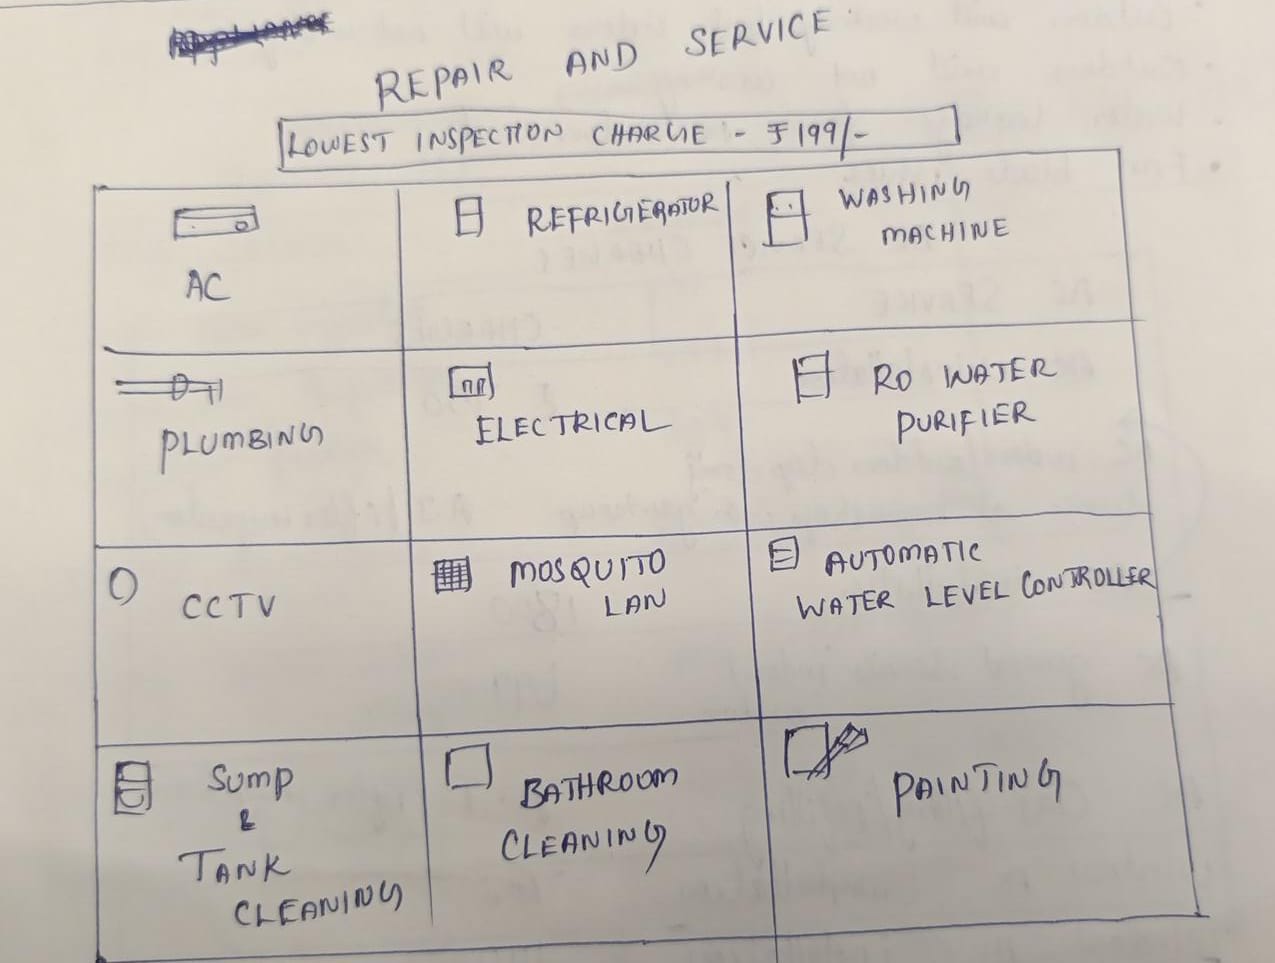 REPAIR AND SERVICE
LOWEST INSPECTION CHARGE - ₹199/-
AC
REFRIGERATOR
WASHING
MACHINE
PLUMBING
ELECTRICAL
RO WATER
PURIFIER
CCTV
MOSQUITO
LAN
AUTOMATIC
WATER LEVEL CONTROLLER
SUMP
&
TANK
CLEANING
BATHROOM
CLEANING
PAINTING